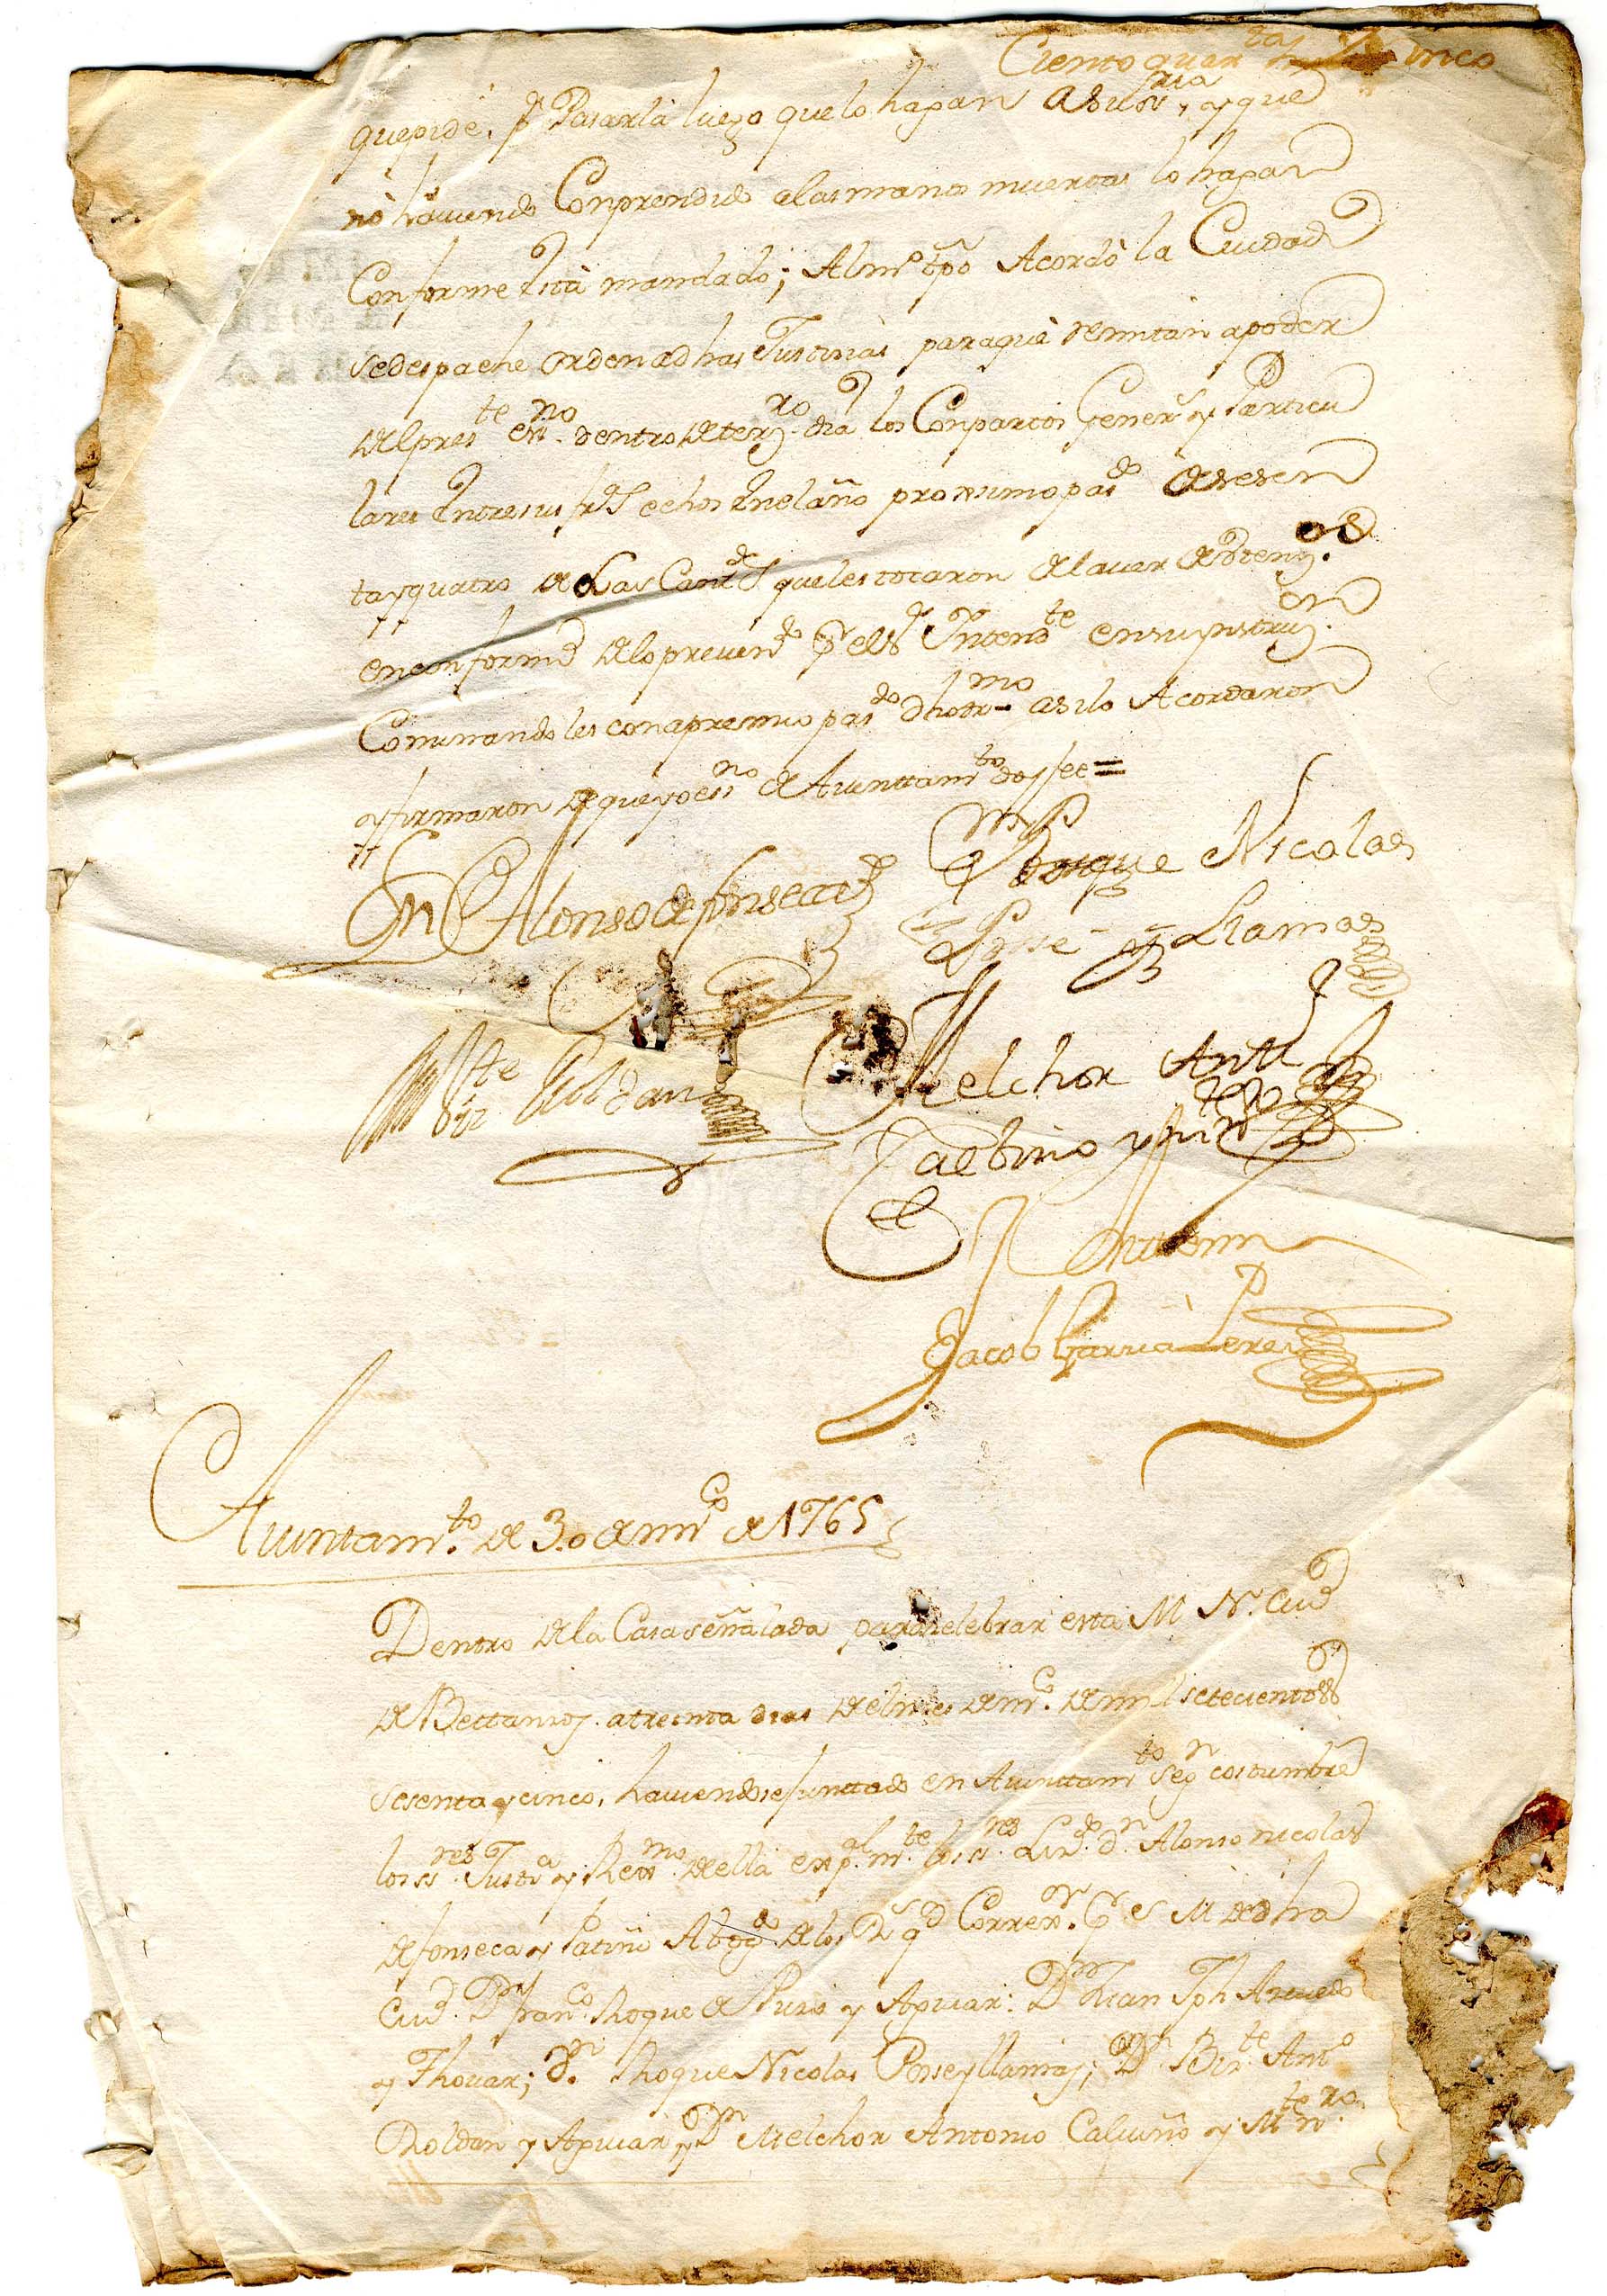 Ciento quar.tas inco
que pide, p.a Pasarla luego que lo hagan a su S.ria, y que
nò haviendo Conprendido alas manos muertas lo hagan
Conforme està mandado; Al m.o tpõ Acordò la Ciudad
se despache orden a dhas Justicias para què remitan a poder
del pres.te es.no dentro de terz.ro dia los Conpartos Gener.s y Particu
lares Entre sus hechos En el año proximo pas.do de sesen
ta y quatro de las Cant.ds que les tocaron
en conformd de lo preven.do p.r el S.r Intend.te en su instruz.on
Cominandoles con apremio pas.do dho ter.mo asi lo Acordaron
y firmaron de que yo es.no de Aiuntam.to doy fee =
Alonso de fonseca
Roque Nicolas
Posse y Llamas
Bte Roldan
Melchor Antt.o
Calbiño y
Antte mi
Jacob Garcia Perez
Aiuntam.to de 30 de mr.co de 1765
Dentro de la Casa señalada para zelebrar esta M N. Ciud
de Bettanzos. a treinta dias del mes de mr.co de mil setecientos
sesenta y cinco, haviendose junttado en Aiunttam.to seg.n costumbre
los ss.res Just.a y Rexi.mo della exp.al m.te los ss.res Liz.do d.n Alonso nicolas
de fonseca y Patiño Abog.do de los R.s C.s Correx.r p.r S M de dha
Ciud. D.n fran.co Roque de Puzo y Apiciar: D.n Juan Jph Azevedo
y Thovar; D.n Roque Nicolas Posse y llamas; D.n Biz.te Ant.o
Roldan y Apiciar y D.n Melchor Antonio Calviño y M.te n.ro